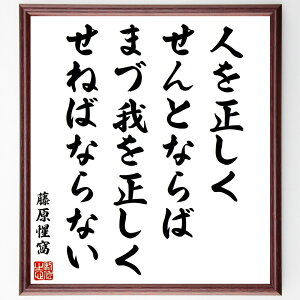 人を正しく
せんとならば
まづ我を正しく
せねばならない
藤原惺窩